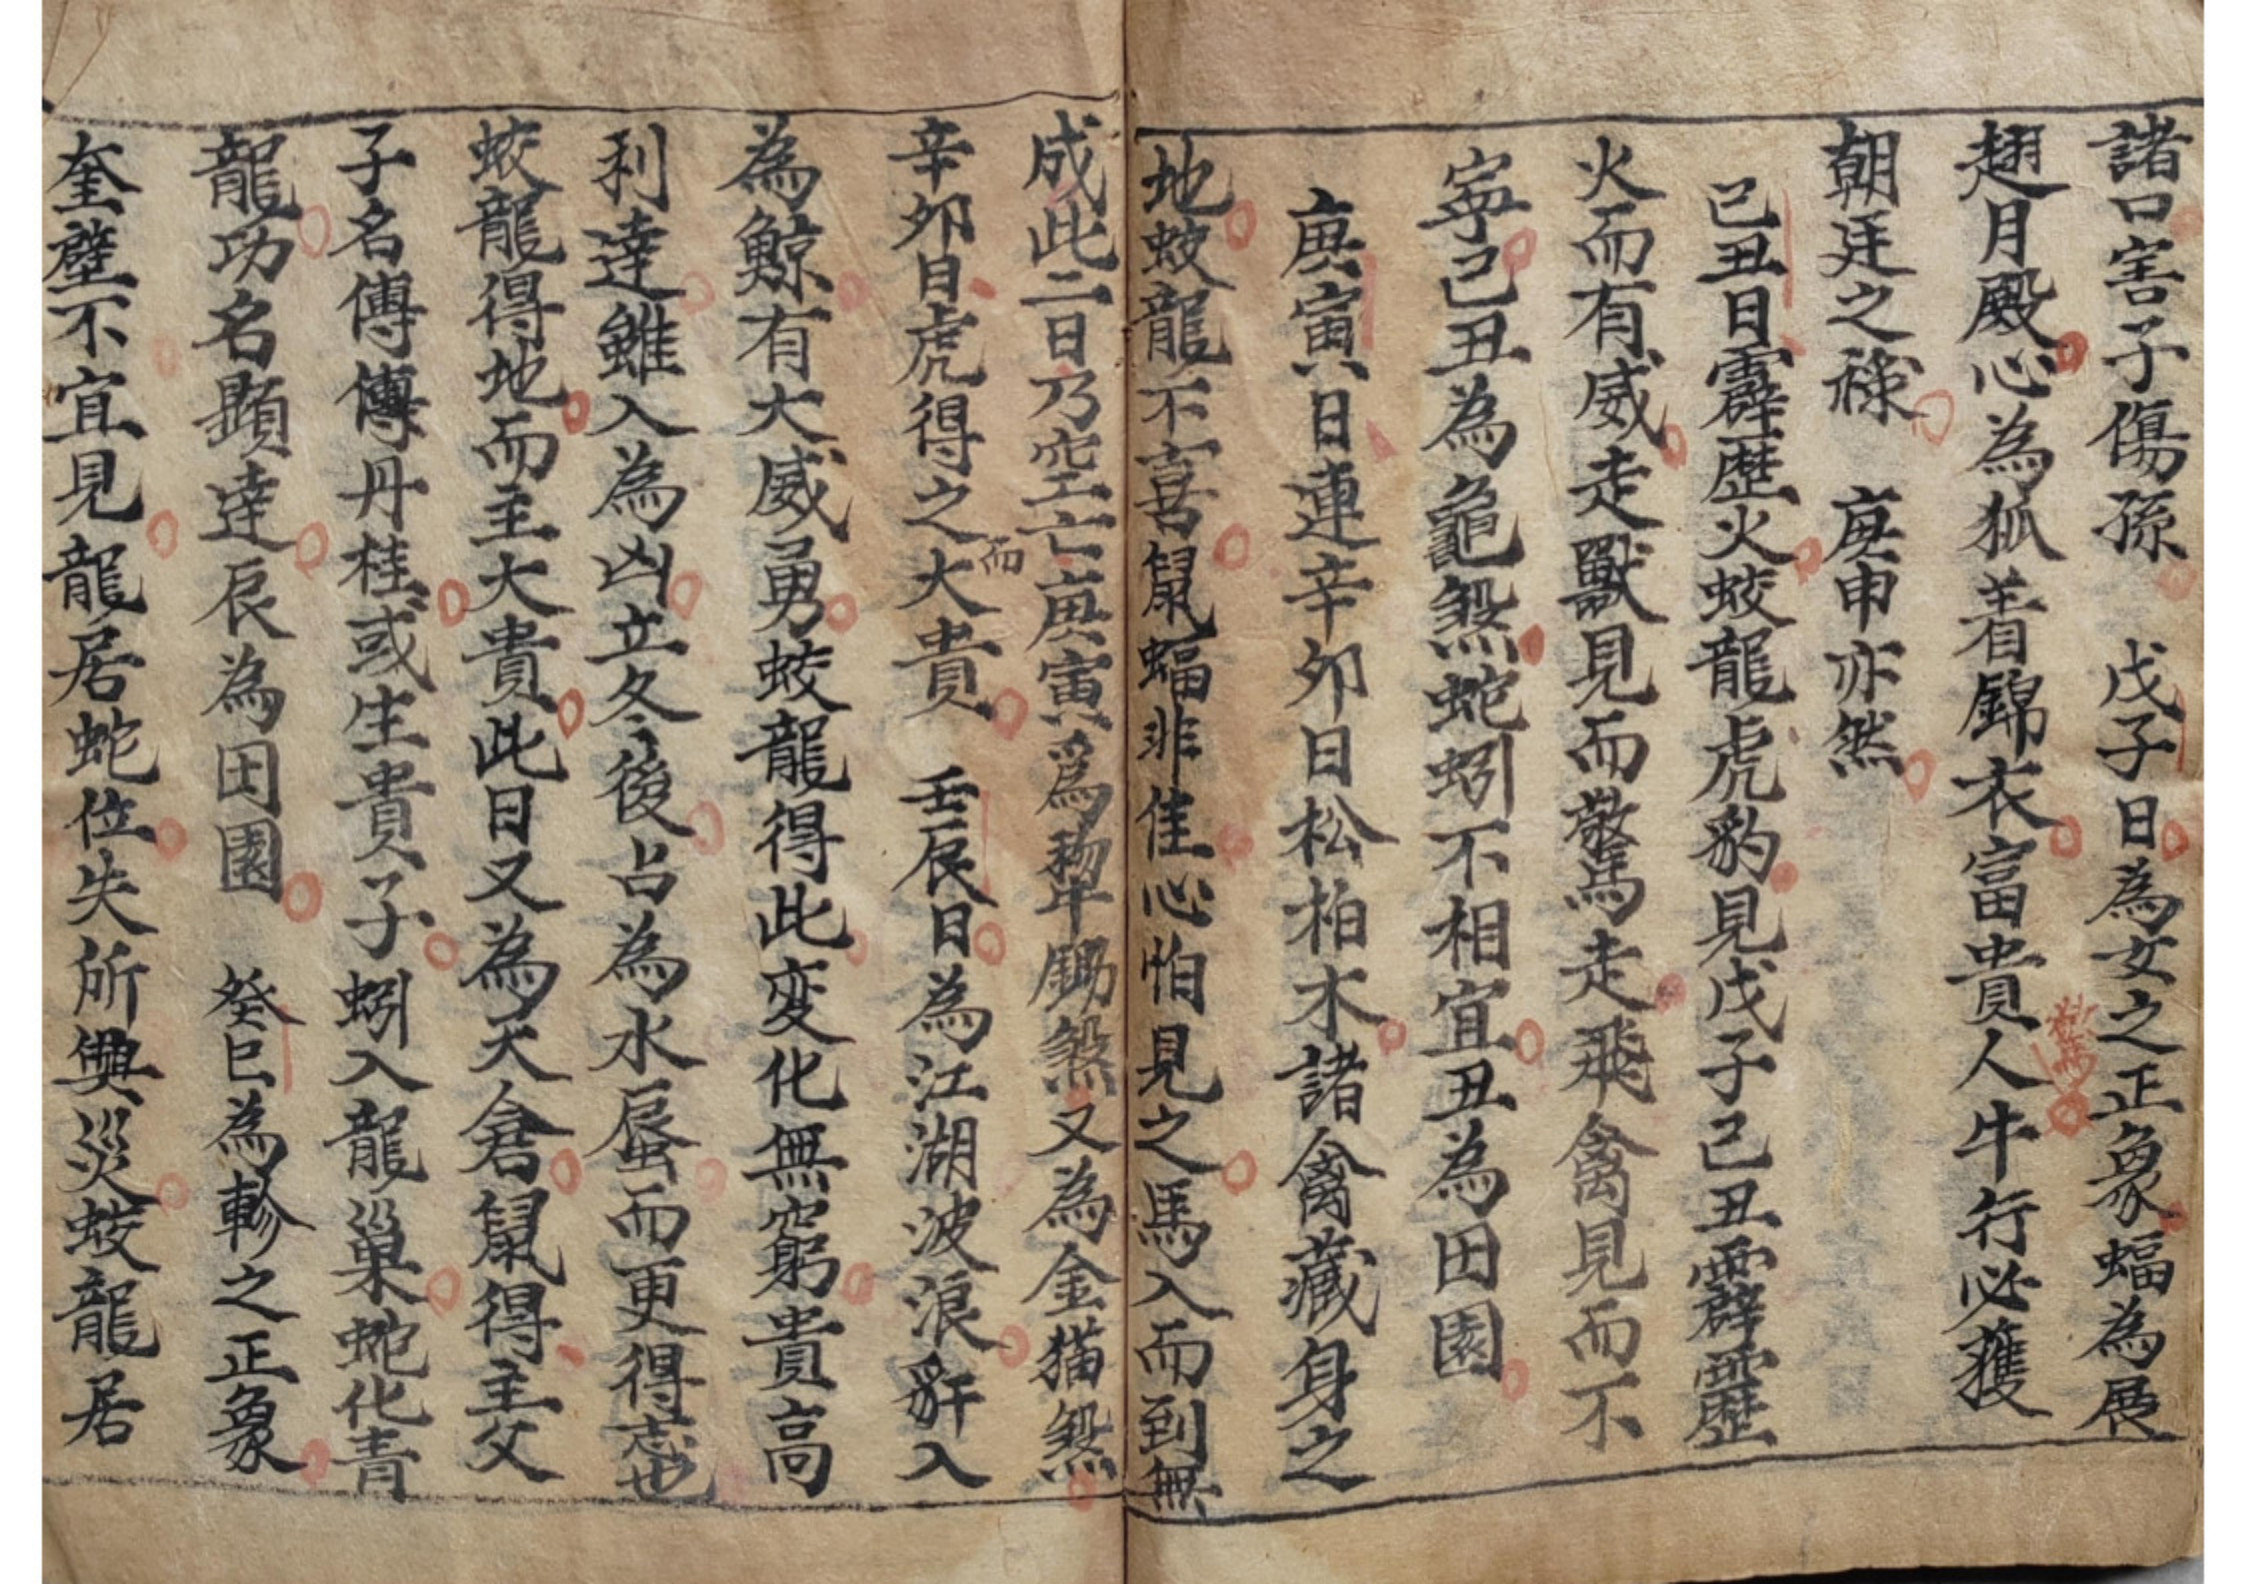 諸口害子傷孫　戊子日為女之正象蝠為展
翅月殿心為狐着錦衣富貴人牛行必獲
朝廷之祿　庚申亦然
己丑日霹歷火蛟龍虎豹見戊子己丑霹靂
火而有威走獸見而驚走飛禽見而不
寧己丑為龜煞蛇蚓不相宜丑為田園
庚寅日連辛卯日松柏木諸禽藏身之
地蛟龍不喜鼠蝠非佳心怕見之馬入而到無
成此二日乃空亡庚寅為犂鋤煞又為金猫煞
辛卯日虎得之而大貴　壬辰日為江湖波浪豻入
為鯨有大威勇蛟龍得此変化無窮貴高
利達雖入為凶立冬後占為水蜃而更得志也
蛟龍得地而主大貴此日又為天倉鼠得主父
子名傳傳丹桂或生貴子蚓入龍巢蛇化青
龍功名顯達辰為田園　癸巳為軫之正象
奎壁不宜見龍居蛇位失所興災蛟龍居